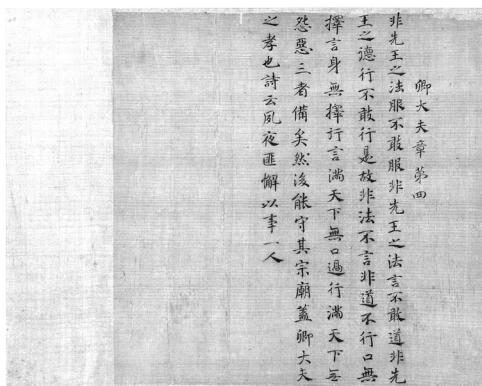 卿大夫章第四
非先王之法服不敢服非先王之法言不敢道非先
王之德行不敢行是故非法不言非道不行口無
擇言身無擇行言滿天下無口過行滿天下無
怨惡三者備矣然後能守其宗廟蓋卿大夫
之孝也詩云夙夜匪懈以事一人